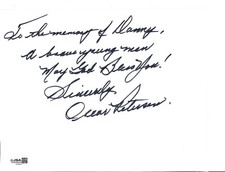 To the memory of Danny,
A brave young man
May God Bless You!
Sincerely
Oscar Peterson.